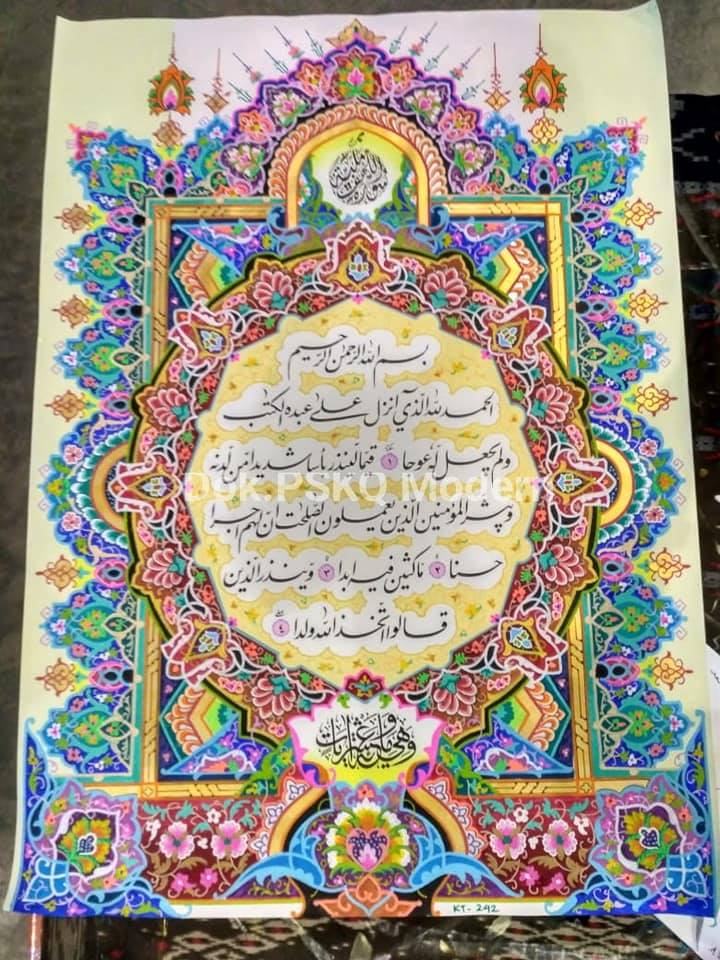 سورة الكهف مكية
بسم الله الرحمن الرحيم
الحمد لله الذي انزل على عبده الكتب
ولم يجعل له عوجا ١ قيما لينذر باسا شديدا من لدنه
Dok.PSKQ Modern
ويبشر المؤمنين الذين يعملون الصلحت ان لهم اجرا
حسنا ٢ ماكثين فيه ابدا ٣ وينذر الذين
قالوا اتخذ الله ولدا ٤
وهي مائة وعشر ايات
KT-242